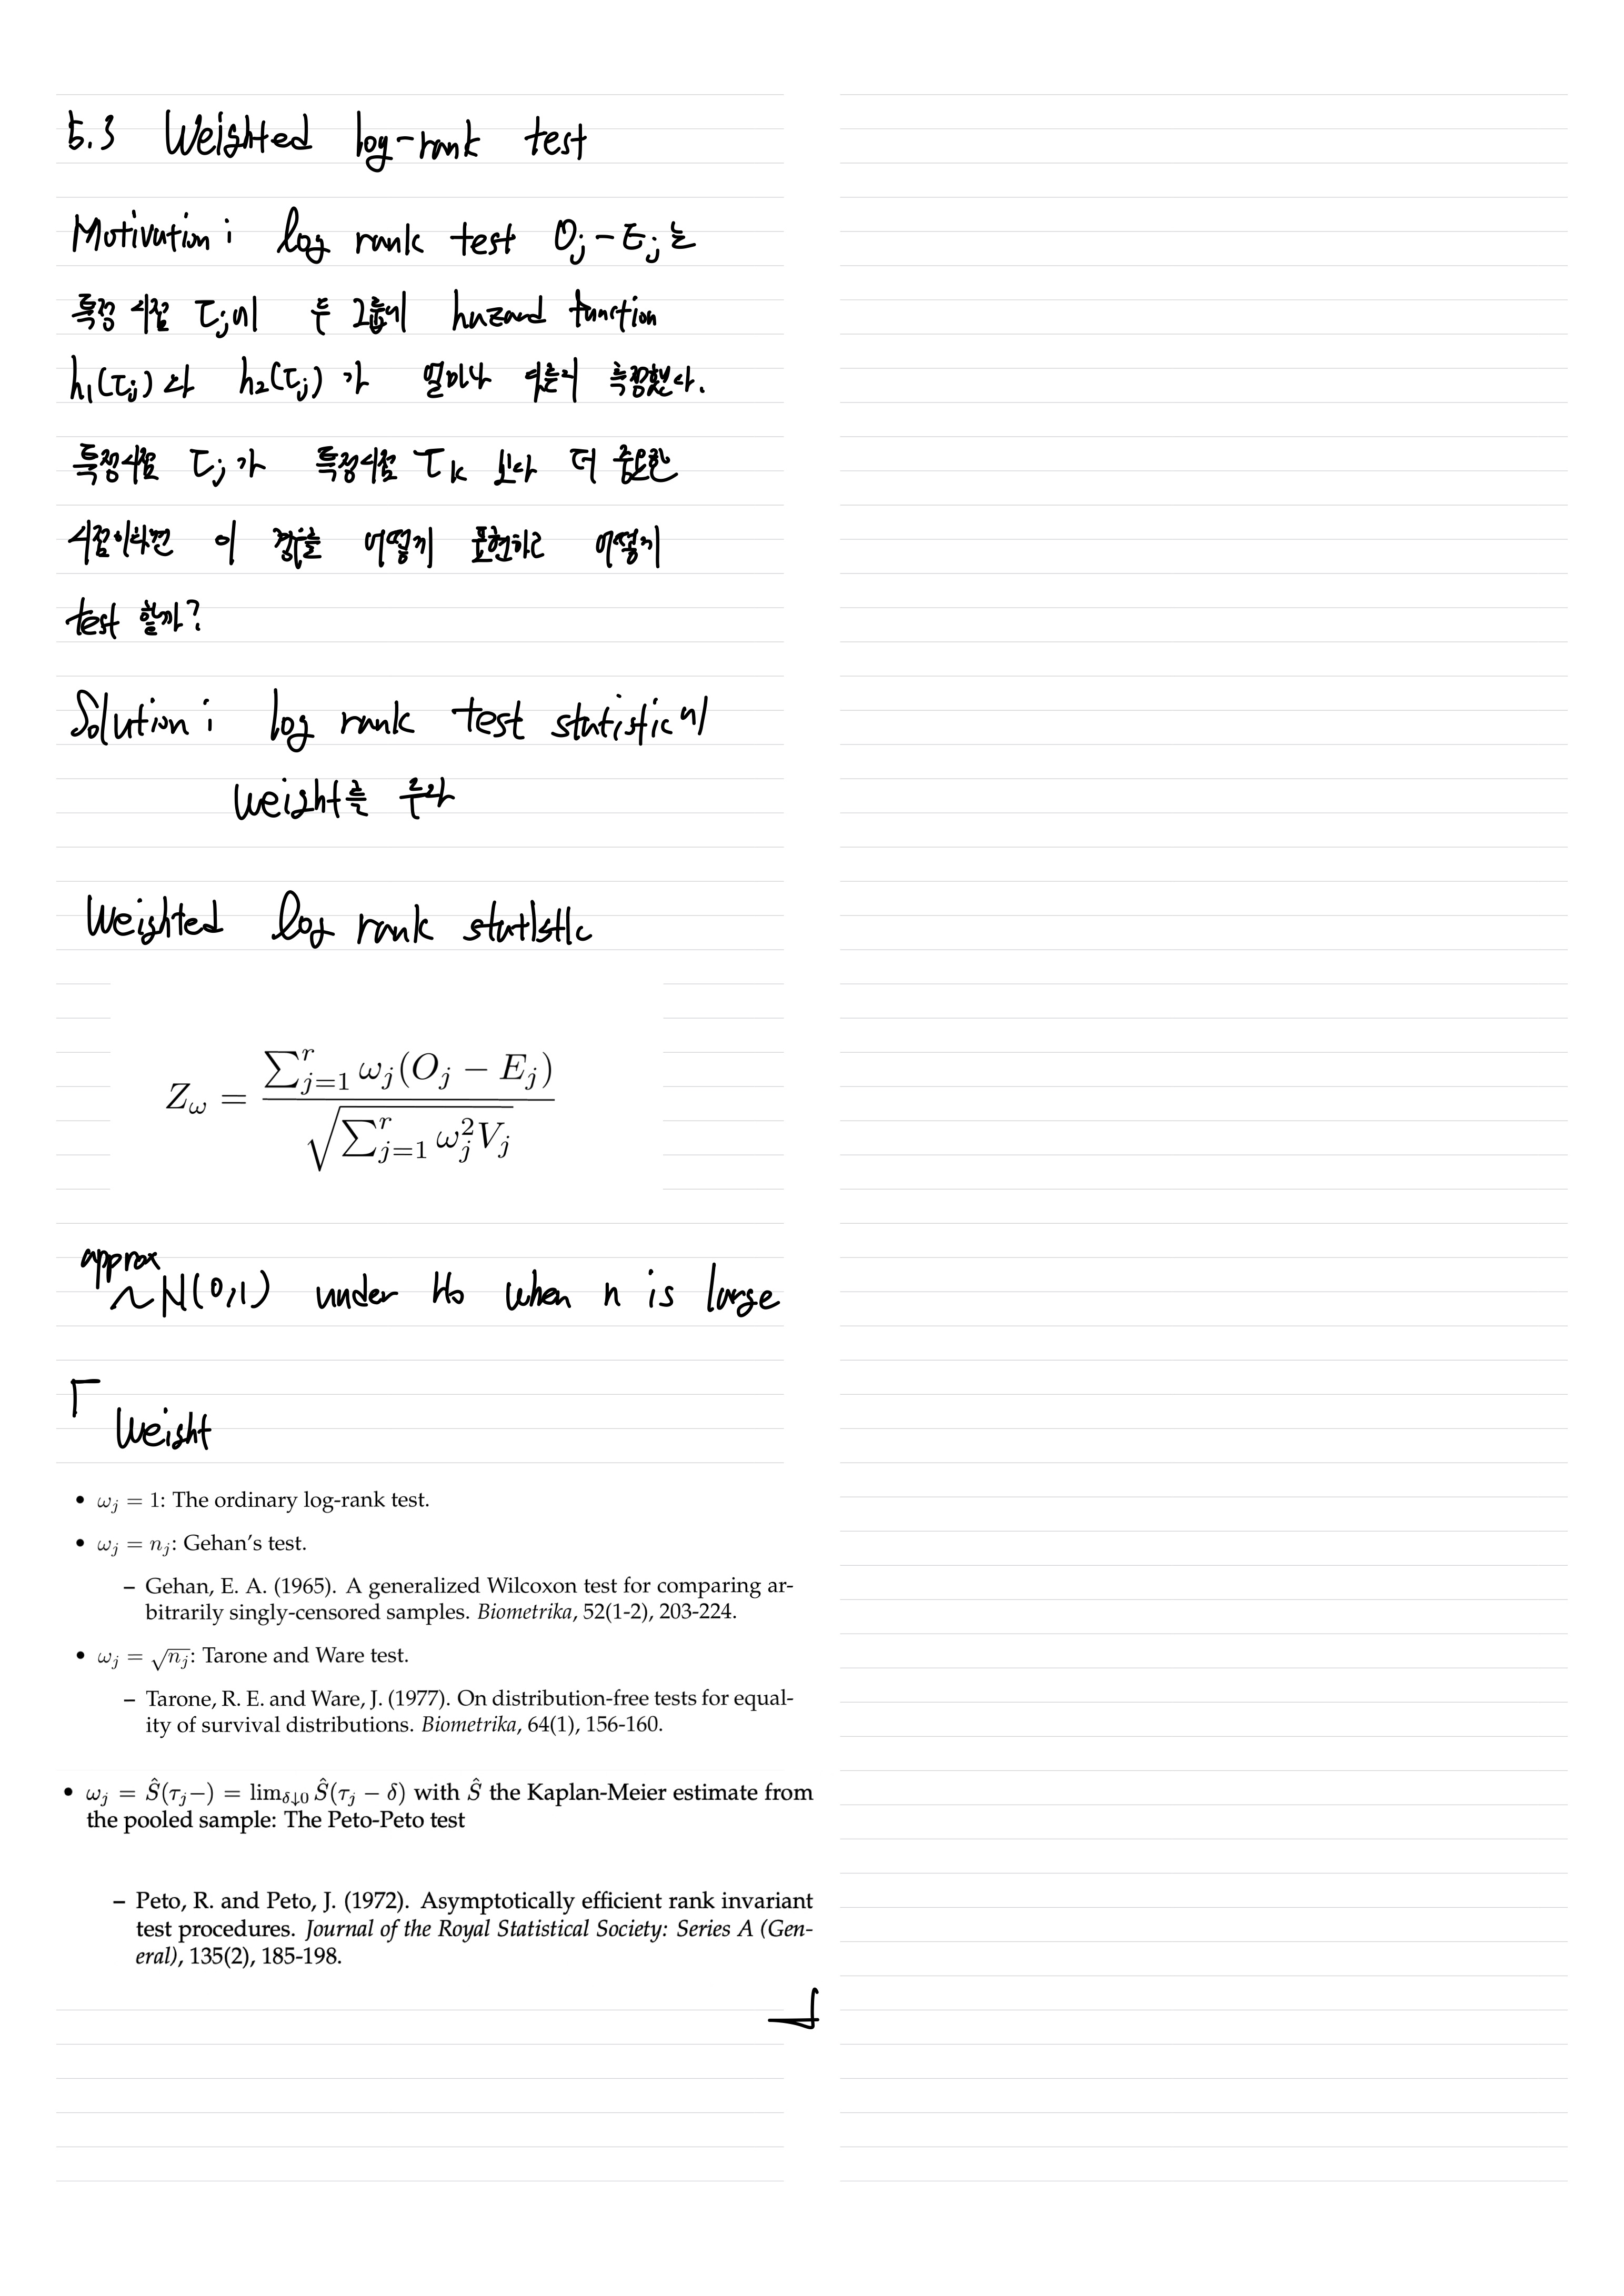 5.3 Weighted log-rank test
Motivation : log rank test O_j - E_j 는
특정 시점 τ_j에 두 그룹에 hazard function
h_1(τ_j) 와 h_2(τ_j) 가 얼마나 다른지 측정했다.
특정시점 τ_j 가 특정시점 τ_k 보다 더 중요한
시점이라면 이 점을 어떻게 표현하고 어떻게
test 할까?
Solution : log rank test statistic에
weight를 주라
Weighted log rank statistic
Z_ω = \frac{\sum_{j=1}^{r} ω_j(O_j − E_j)}{\sqrt{\sum_{j=1}^{r} ω_j^2 V_j}}
approx
~N(0,1) under H_0 when n is large
Weight
• ω_j = 1: The ordinary log-rank test.
• ω_j = n_j: Gehan's test.
– Gehan, E. A. (1965). A generalized Wilcoxon test for comparing ar-
bitrarily singly-censored samples. Biometrika, 52(1-2), 203-224.
• ω_j = √n_j: Tarone and Ware test.
– Tarone, R. E. and Ware, J. (1977). On distribution-free tests for equal-
ity of survival distributions. Biometrika, 64(1), 156-160.
• ω_j = Ŝ(τ_j−) = lim_{δ↓0} Ŝ(τ_j − δ) with Ŝ the Kaplan-Meier estimate from
the pooled sample: The Peto-Peto test
– Peto, R. and Peto, J. (1972). Asymptotically efficient rank invariant
test procedures. Journal of the Royal Statistical Society: Series A (Gen-
eral), 135(2), 185-198.